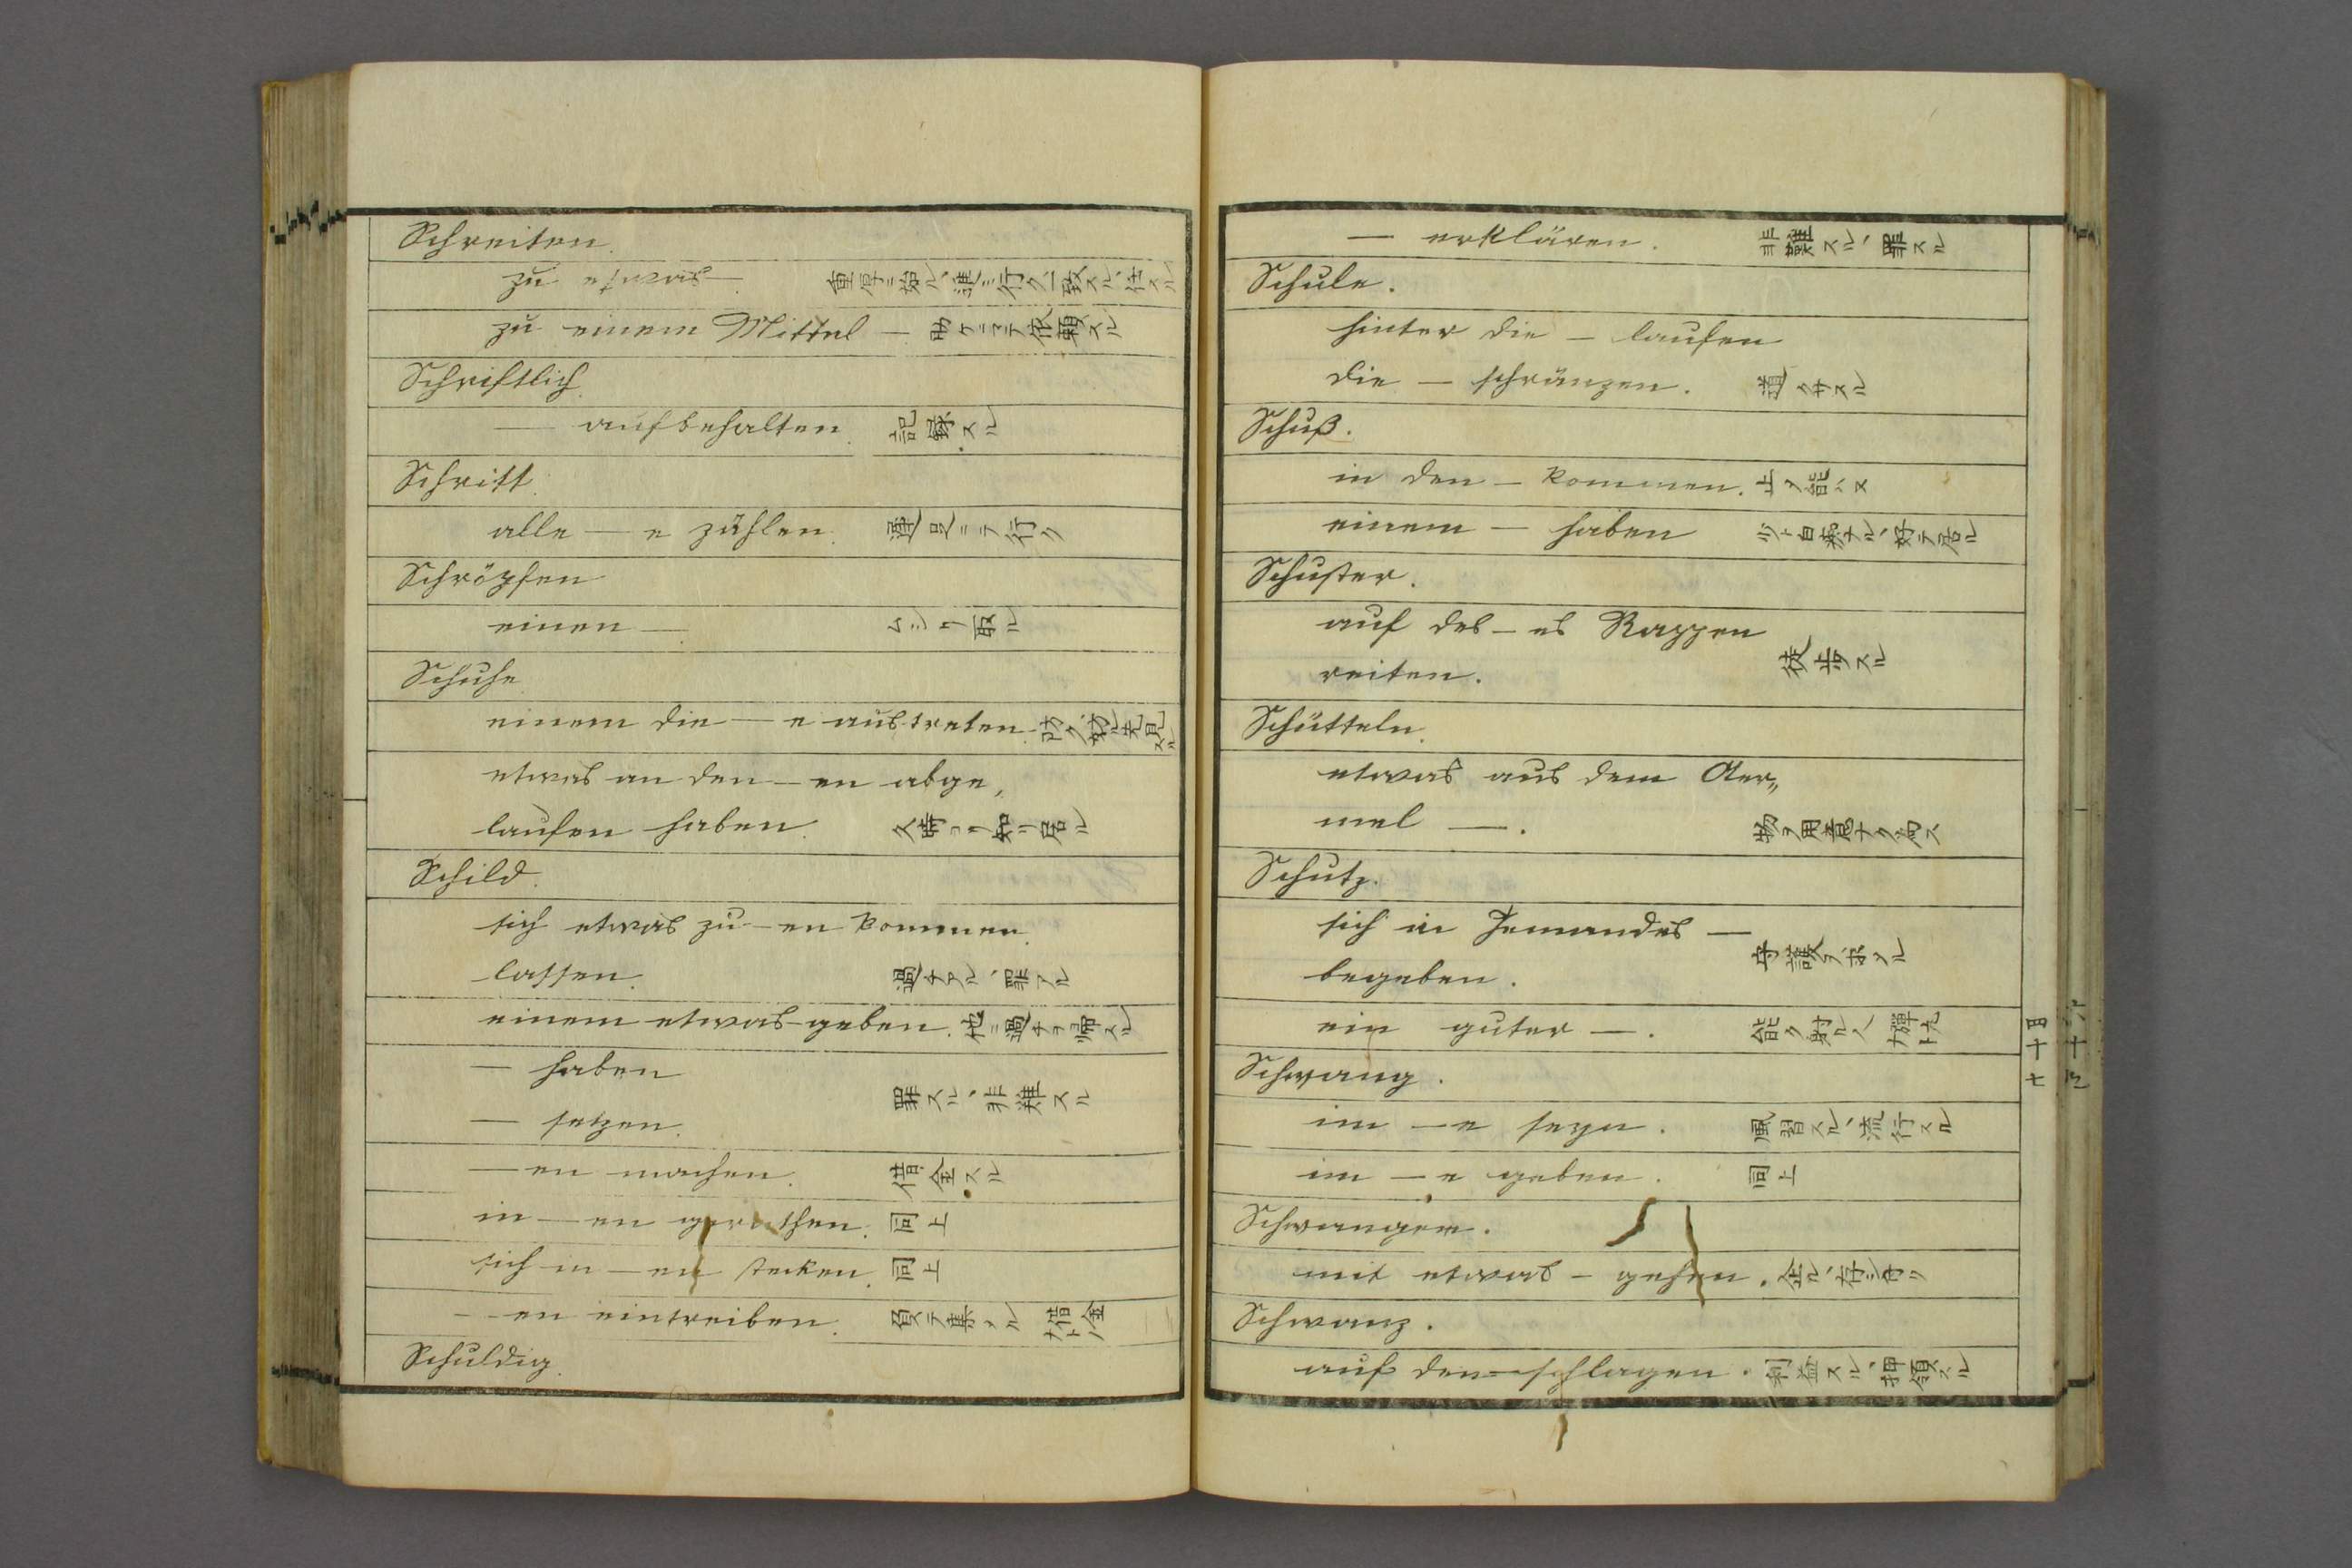 Schreiten.
zu etwas —.
zu einem Mittel — 助ケニマテ依頼スル
Schriftlich.
— aufbehalten. 記録スル
Schritt.
alle — e zählen. 遅足ニテ行ク
Schröpfen
einen —. ムシリ取ル
Schuhe
einem die — e austreten.
etwas an den — en abge,
laufen haben. 久時ヨリ知リ居ル
Schild.
sich etwas zu — en kommen
lassen. 過チアル、罪アル
einem etwas — geben. 他ニ過チヲ帰スル
— haben
— setzen. 罪スル、非難スル
— en machen. 借金スル
in — en gerathen. 同上
sich in — en stecken. 同上
— en eintreiben. 負テ集ル 借金ナト
Schuldig.
— erklären. 非難スル、罪スル
Schule.
hinter die — laufen
die — schränzen. 道クサスル
Schuß.
in den — kommen. 止ル能ハス
einem — haben
Schuster.
auf des — es Rappen
reiten. 徒歩スル
Schütteln.
etwas aus dem Aer„
mel —. 物ヲ用意ナク為ス
Schutz.
sich in Jemandes —
begeben. 守護ヲ求ル
ein guter —. 能ク射ル人
Schwang.
im — e seyn. 風習スル、流行スル
im — e geben. 同上
Schwanger.
mit etwas — gehen.
Schwanz.
auf den — schlagen. 利益スル、押領スル